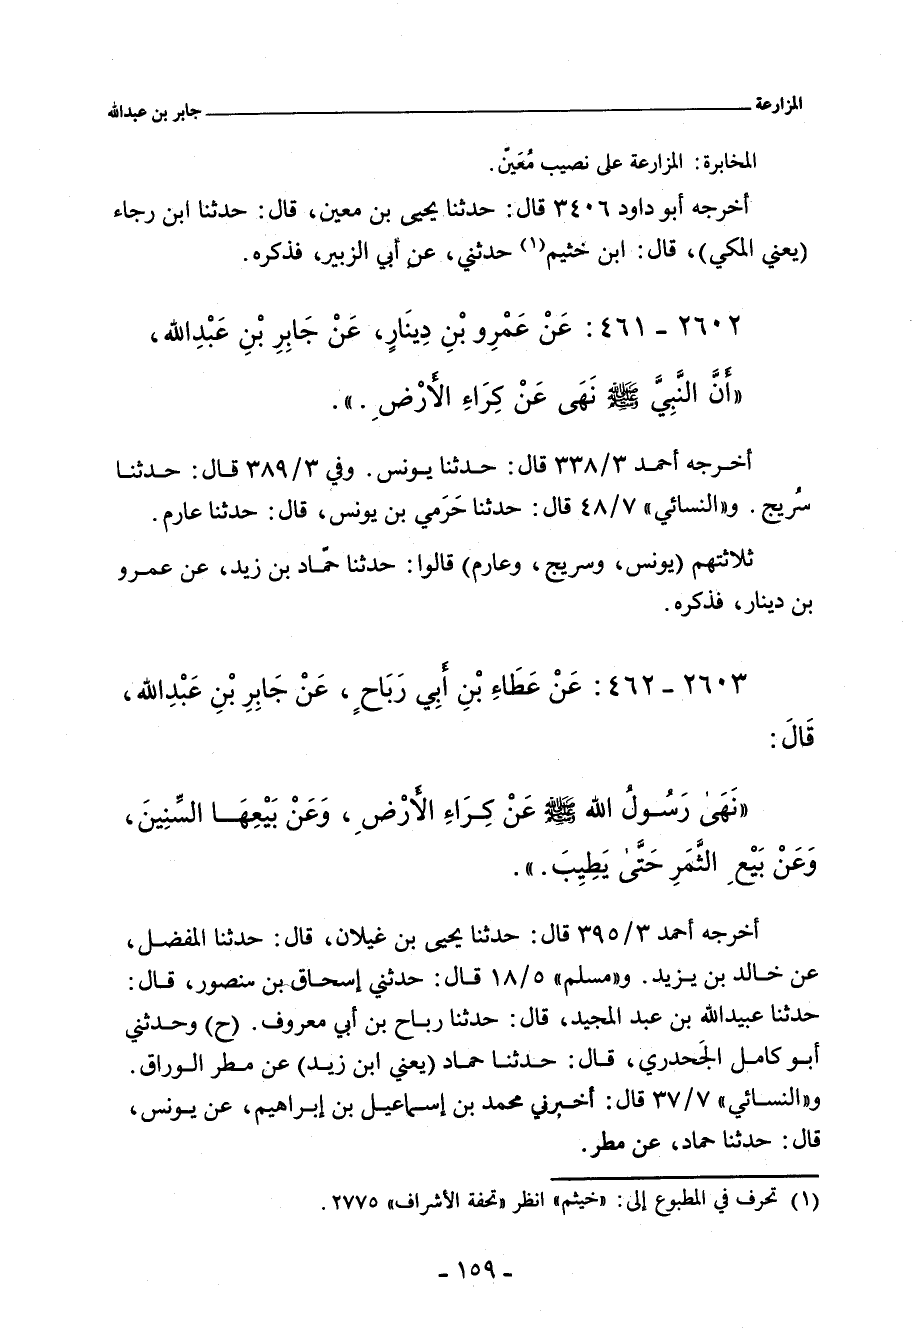 المزارعة ــــــــ جابر بن عبدالله
المخابرة: المزارعة على نصيب مُعَينّ.
أخرجه أبو داود ٣٤٠٦ قال: حدثنا يحيى بن معين، قال: حدثنا ابن رجاء
(يعني المكي)، قال: ابن خثيم(١) حدثني، عن أبي الزبير، فذكره.
٢٦٠٢ - ٤٦١: عَنْ عَمْرِو بْنِ دِينَارٍ، عَنْ جَابِرِ بْنِ عَبْدِالله،
«أَنَّ النَّبِيَّ ﷺ نَهَى عَنْ كِرَاءِ الأَرْضِ.».
أخـرجه أحمـد ٣٣٨/٣ قال: حـدثنا يـونس. وفي ٣٨٩/٣ قـال: حـدثنـا
سُريج. و«النسائي» ٤٨/٧ قال: حدثنا حَرَمي بن يونس، قال: حدثنا عارم.
ثلاثتهم (يونس، وسريج، وعارم) قالوا: حدثنا حمّاد بن زيد، عن عمـرو
بن دينار، فذكره.
٢٦٠٣ - ٤٦٢: عَنْ عَطَاءِ بْنِ أَبِي رَبَاحٍ، عَنْ جَابِرِ بْنِ عَبْدِالله،
قَالَ:
«نَهَىٰ رَسُـولُ الله ﷺ عَنْ كِـرَاءِ الأَرْضِ، وَعَنْ بَيْعِهَـا السِّنِينَ،
وَعَنْ بَيْعِ الثَّمَرِ حَتَّىٰ يَطِيبَ.».
أخرجه أحمد ٣٩٥/٣ قال: حدثنا يحيى بن غيلان، قال: حدثنا المفضـل،
عن خالـد بن يـزيد. و«مسلم» ١٨/٥ قـال: حدثني إسحـاق بن منصور، قـال:
حدثنا عبيدالله بن عبد المجيد، قال: حدثنا ربـاح بن أبي معروف. (ح) وحـدثني
أبـو كامل الجَحدري، قـال: حـدثنـا حمـاد (يعني ابن زيـد) عن مـطر الـوراق.
و«النسـائي» ٣٧/٧ قال: أخـبرني محمد بن إسـماعيـل بن إبـراهيم، عن يـونس،
قال: حدثنا حماد، عن مطر.
(١) تحرف في المطبوع إلى: «خيثم» انظر «تحفة الأشراف» ٢٧٧٥.
- ١٥٩ -